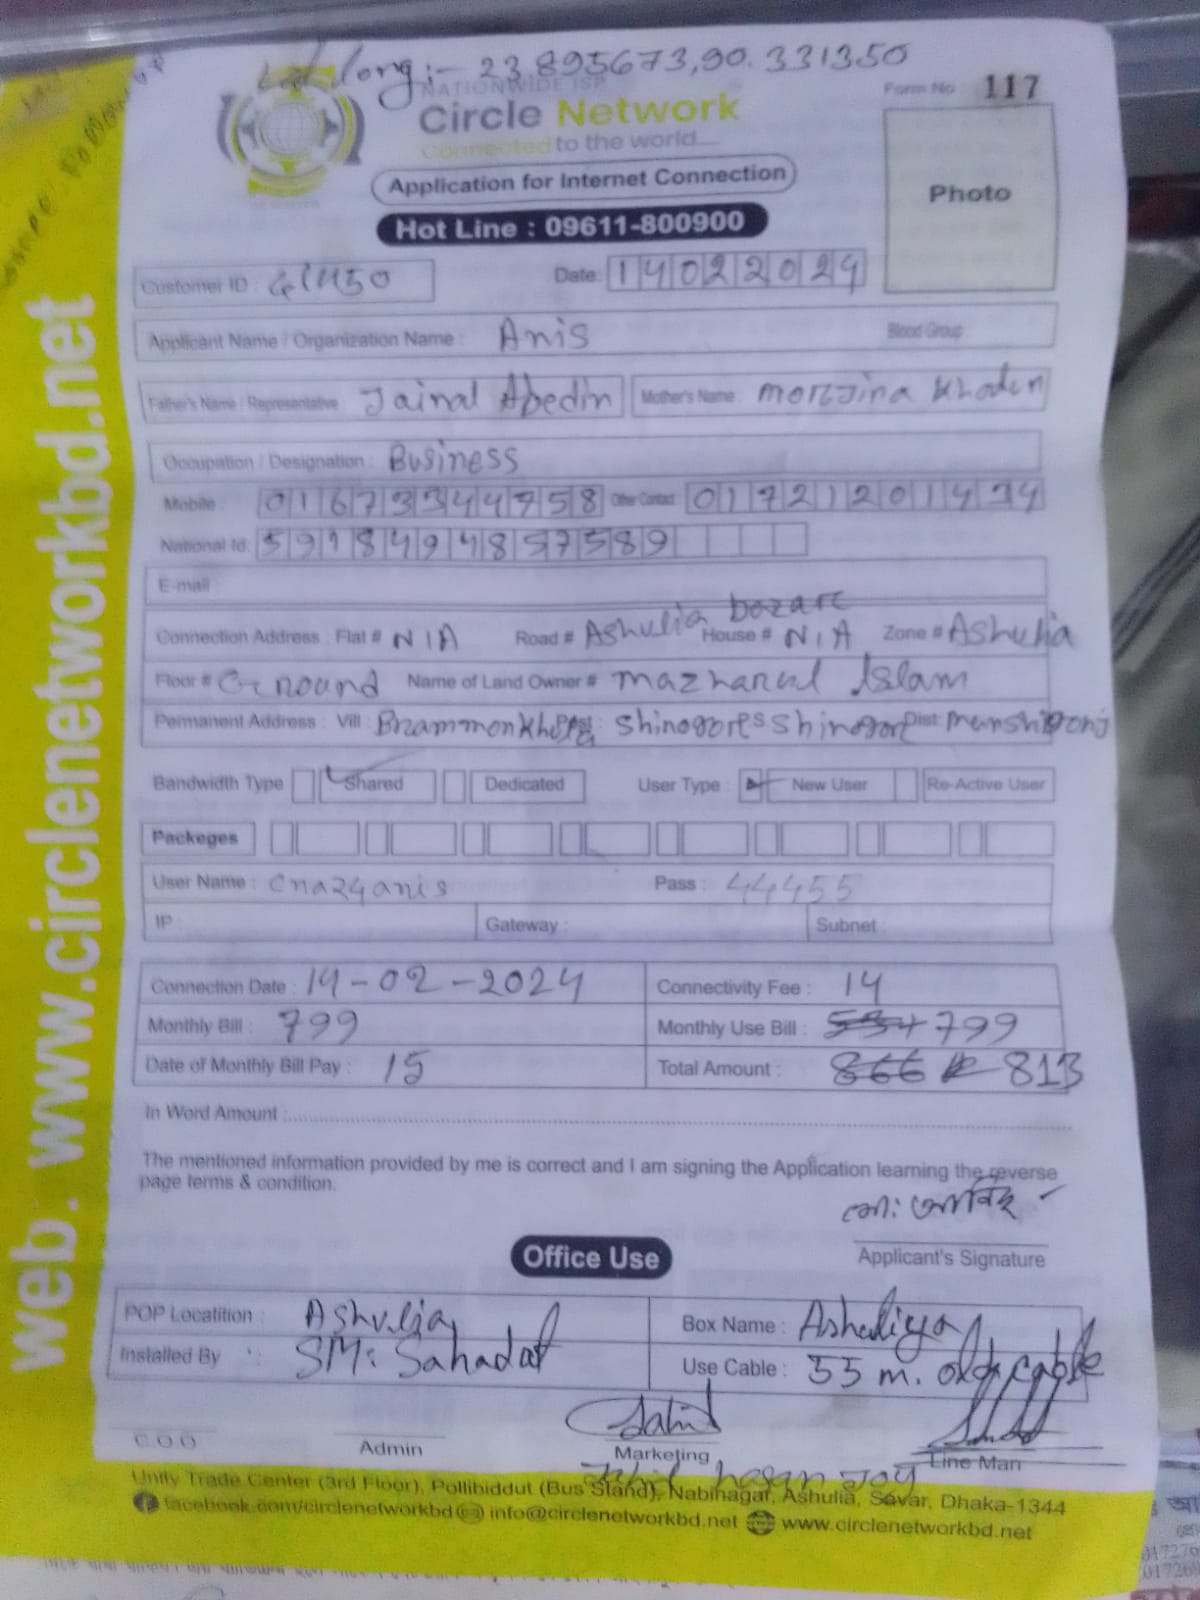 Lat long:- 23.895673,90.331350
NATIONWIDE ISP
Form No 117
Circle Network
Connected to the world....
Application for Internet Connection
Photo
Hot Line : 09611-800900
Customer ID : Date: 14022024
Applicant Name / Organization Name : Anis Blood Group
Father's Name / Representative Jainal Abedin Mother's Name : Morzina Khaden
Occupation / Designation : Business
Mobile : 01673344758 Other Contact 01721201474
National Id:
E-mail
bazar
Connection Address : Flat # N/A Road # Ashulia House # N/A Zone # Ashulia
Floor # Ground Name of Land Owner # Mazharul Islam
Permanent Address : Vill : Dist:
Bandwidth Type Shared Dedicated User Type : New User Re-Active User
Packeges
User Name : cna24anis Pass : 44455
IP : Gateway : Subnet :
Connection Date : 14-02-2024 Connectivity Fee : 14
Monthly Bill : 799 Monthly Use Bill : 799
Date of Monthly Bill Pay : 15 Total Amount : 866 813
In Word Amount :
The mentioned information provided by me is correct and I am signing the Application learning the reverse
page terms & condition.
Applicant's Signature
Office Use
POP Locatition : Ashulia Box Name : Ashuliya
Installed By : SM: Sahadat Use Cable : 55 m. old cable
C.O.O Admin Marketing Line Man
Jahid hasan Joy
Unity Trade Center (3rd Floor), Pollibiddut (Bus Stand), Nabinagar, Ashulia, Savar, Dhaka-1344
facebook.com/circlenetworkbd info@circlenetworkbd.net www.circlenetworkbd.net
web. www.circlenetworkbd.net